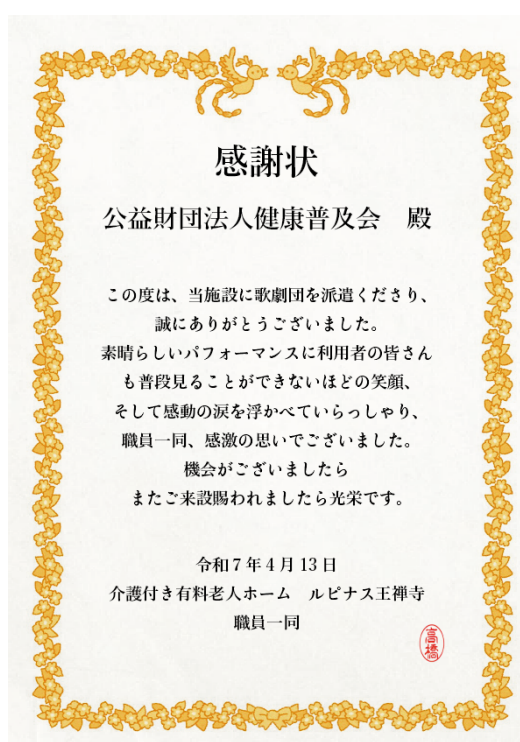 感謝状
公益財団法人健康普及会　殿
この度は、当施設に歌劇団を派遣くださり、
誠にありがとうございました。
素晴らしいパフォーマンスに利用者の皆さん
も普段見ることができないほどの笑顔、
そして感動の涙を浮かべていらっしゃり、
職員一同、感激の思いでございました。
機会がございましたら
またご来設賜われましたら光栄です。
令和７年４月13日
介護付き有料老人ホーム　ルピナス王禅寺
職員一同
高橋